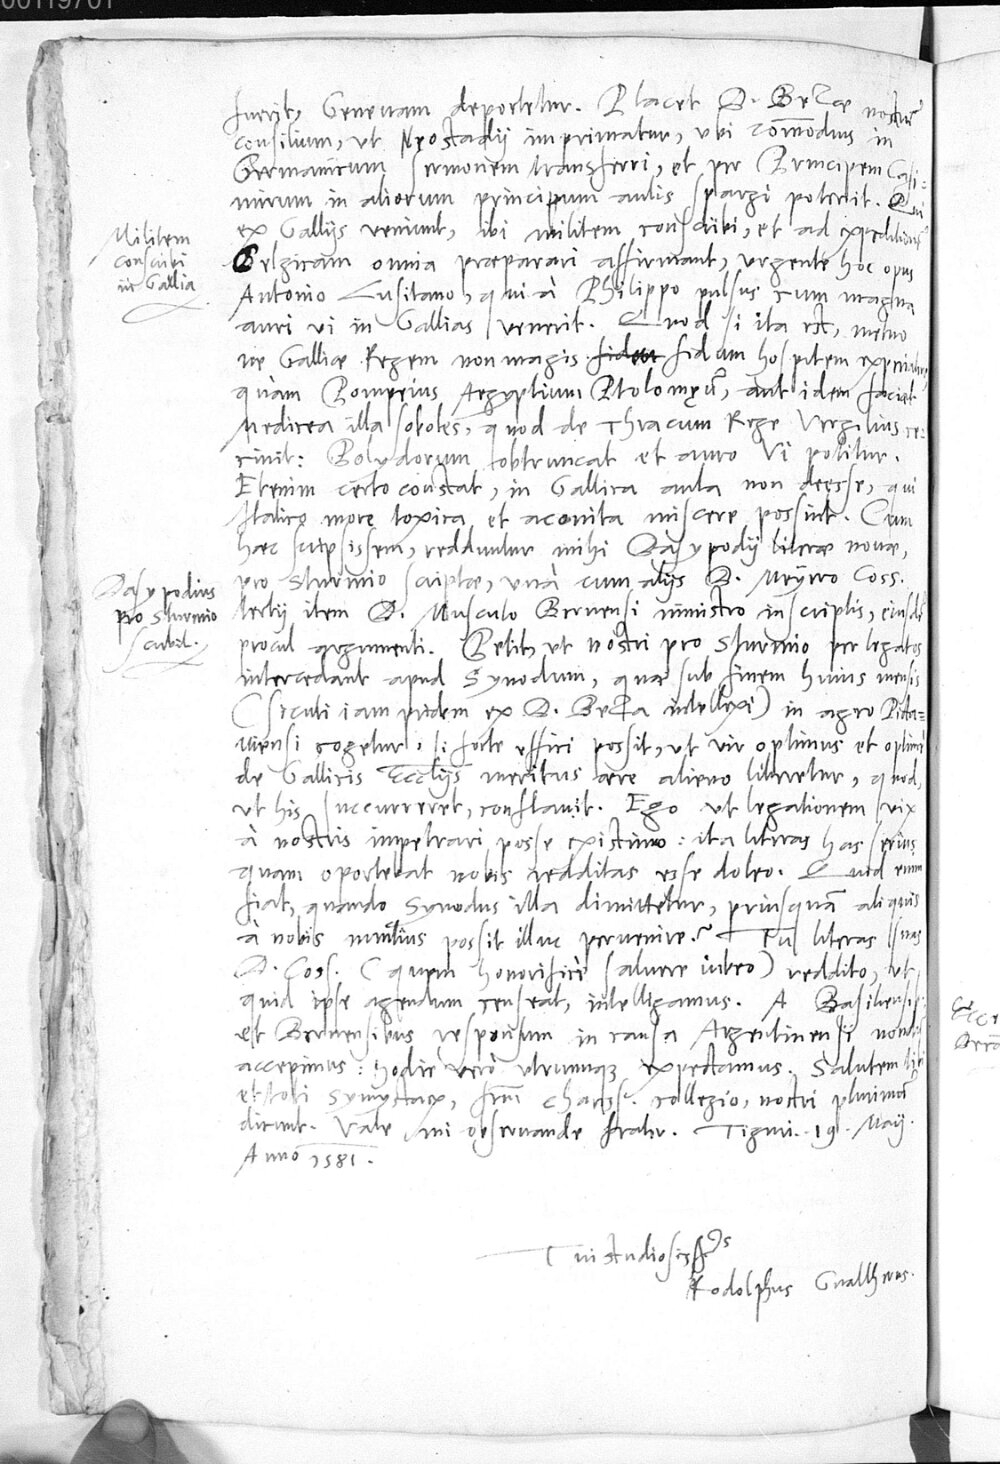 00119701
fuerit, Geneuam deportetur. Placet D. Bezæ nostrū
consilium, vt Neostadij imprimatur, vbi com̄odius in
Germanicum sermonem transferri, et per Principem Casi-
mirum in aliorum principum aulis spargi poterit. Qui
ex Gallijs veniunt, ibi militem conscribi, et ad expeditionē
Belgicam omnia præparari affirmant, vrgente hoc opus
Antonio Lusitano, qui à Philippo pulsus cum magna
auri vi in Gallias venerit. Quod si ita est, metuo
ne Galliæ Regem non magis fidum hospitem experiatur,
quàm Pompeius Aegyptium Ptolomęū, aut idem faciat
Medicea illa soboles, quod de Thracum Rege Vergilius ce-
cinit: Polydorum obtruncat et auro Vi potitur.
Etenim certo constat, in Gallica aula non deesse, qui
Italico more toxica et aconita miscere possint. Cum
hæc scripsissem, redduntur mihi Dasypodij literæ nouæ,
pro Sturmio scriptæ, vnà cum alijs D. Meyero Coss.
tertijs item D. Musculo Bernensi ministro inscriptis, eiusdē
procul argumenti. Petit, vt nostri pro Sturmio per legatos
intercedant apud Synodum, quæ sub finem huius mensis
(sicuti iam pridem ex D. Beza intellexi) in agro Picta-
uiensi cogetur, si forte effici possit, vt vir optimus et optimè
de Gallicis Eccl̄ijs meritus ære alieno liberetur, quod,
vt his succurreret, conflauit. Ego vt legationem vix
à nostris impetrari posse existimo: ita literas has serius
quam oportebat nobis redditas esse doleo. Quid enim
fiat, quando Synodus illa dimittetur, priusquā aliquis
à nobis nuntius possit illuc peruenire? Tu literas suas
D. Coss. (quem honorificè saluere iubeo) reddito, vt
quid ipse agendum censeat, intelligamus. A Basiliensib.
et Bernensibus responsum in causa Argentinensi nondū
accepimus: hodie verò vtrumqz expectamus. Salutem tibi
et toti Symystarū, frūm chariss. collegio, nostri plurimā
dicunt. Vale mi obseruande frater. Tiguri. 19. Maij.
Anno 1581.
Tui studiosiss
Rodolphus Gualtherus.
Militem
conscribi
in Gallia
Dasypodius
pro Sturmio
scribit.